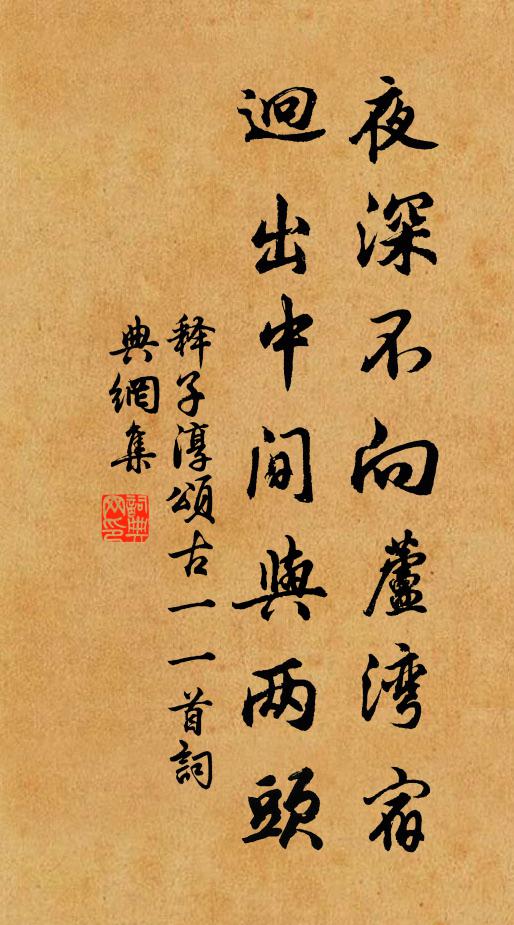 夜深不向蘆湾宿
迥出中間與两頭
释子淳頌古一一首詞
典網集
詞典
网印